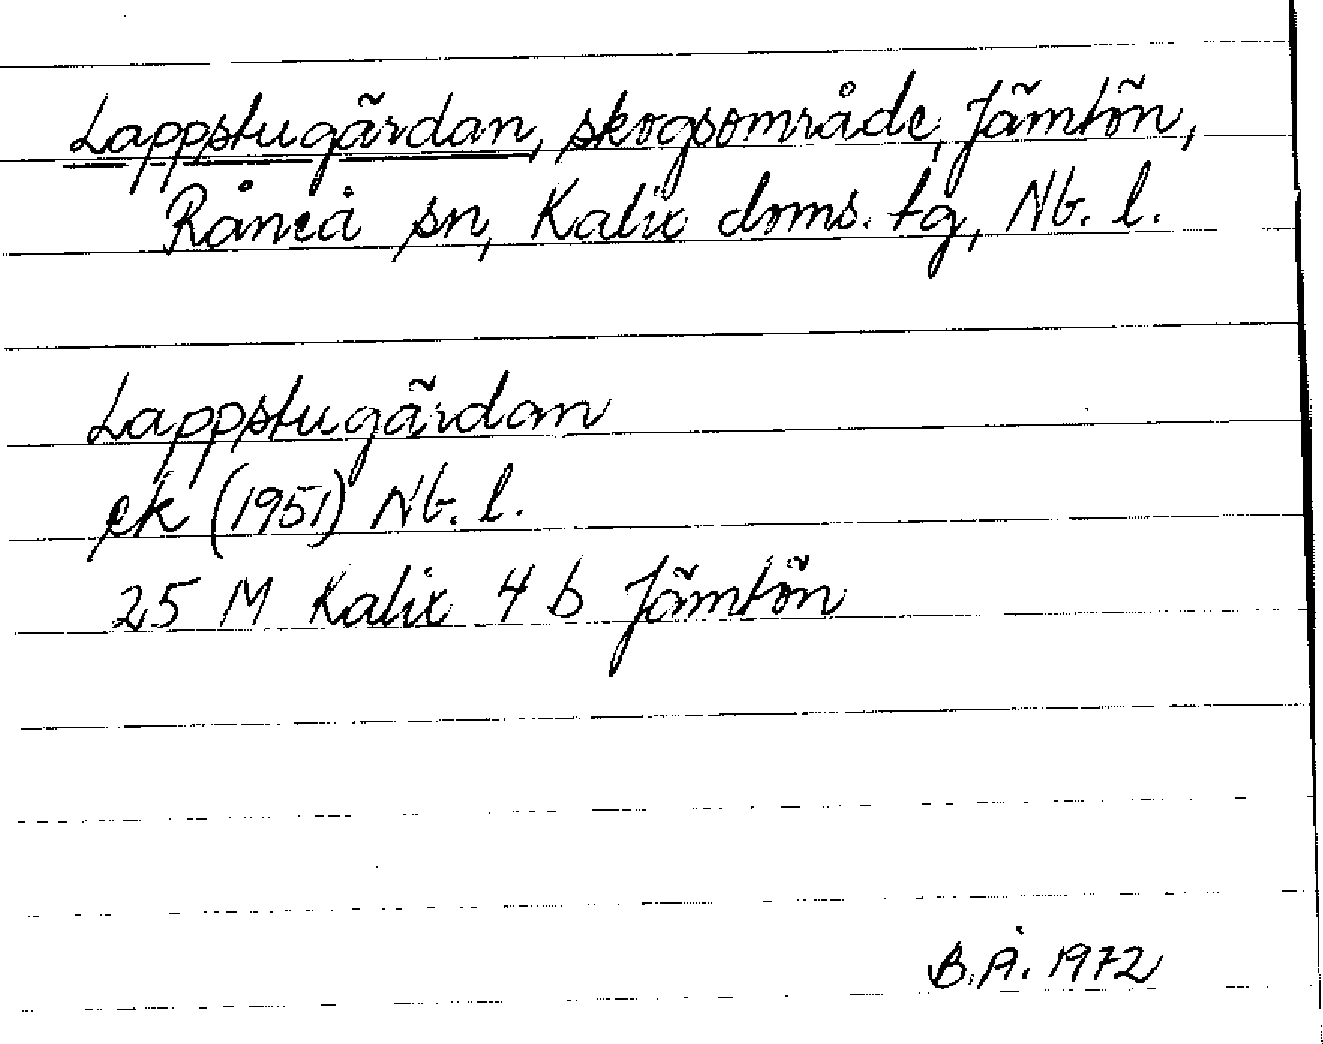 Lappstugärdan, skogsområde, Jämtön,
Råneå sn, Kalix doms. tg, Nb. l.
Lappstugärdan
ek (1951) Nb. l.
25 M Kalix 4 b Jämtön
B.Å. 1972